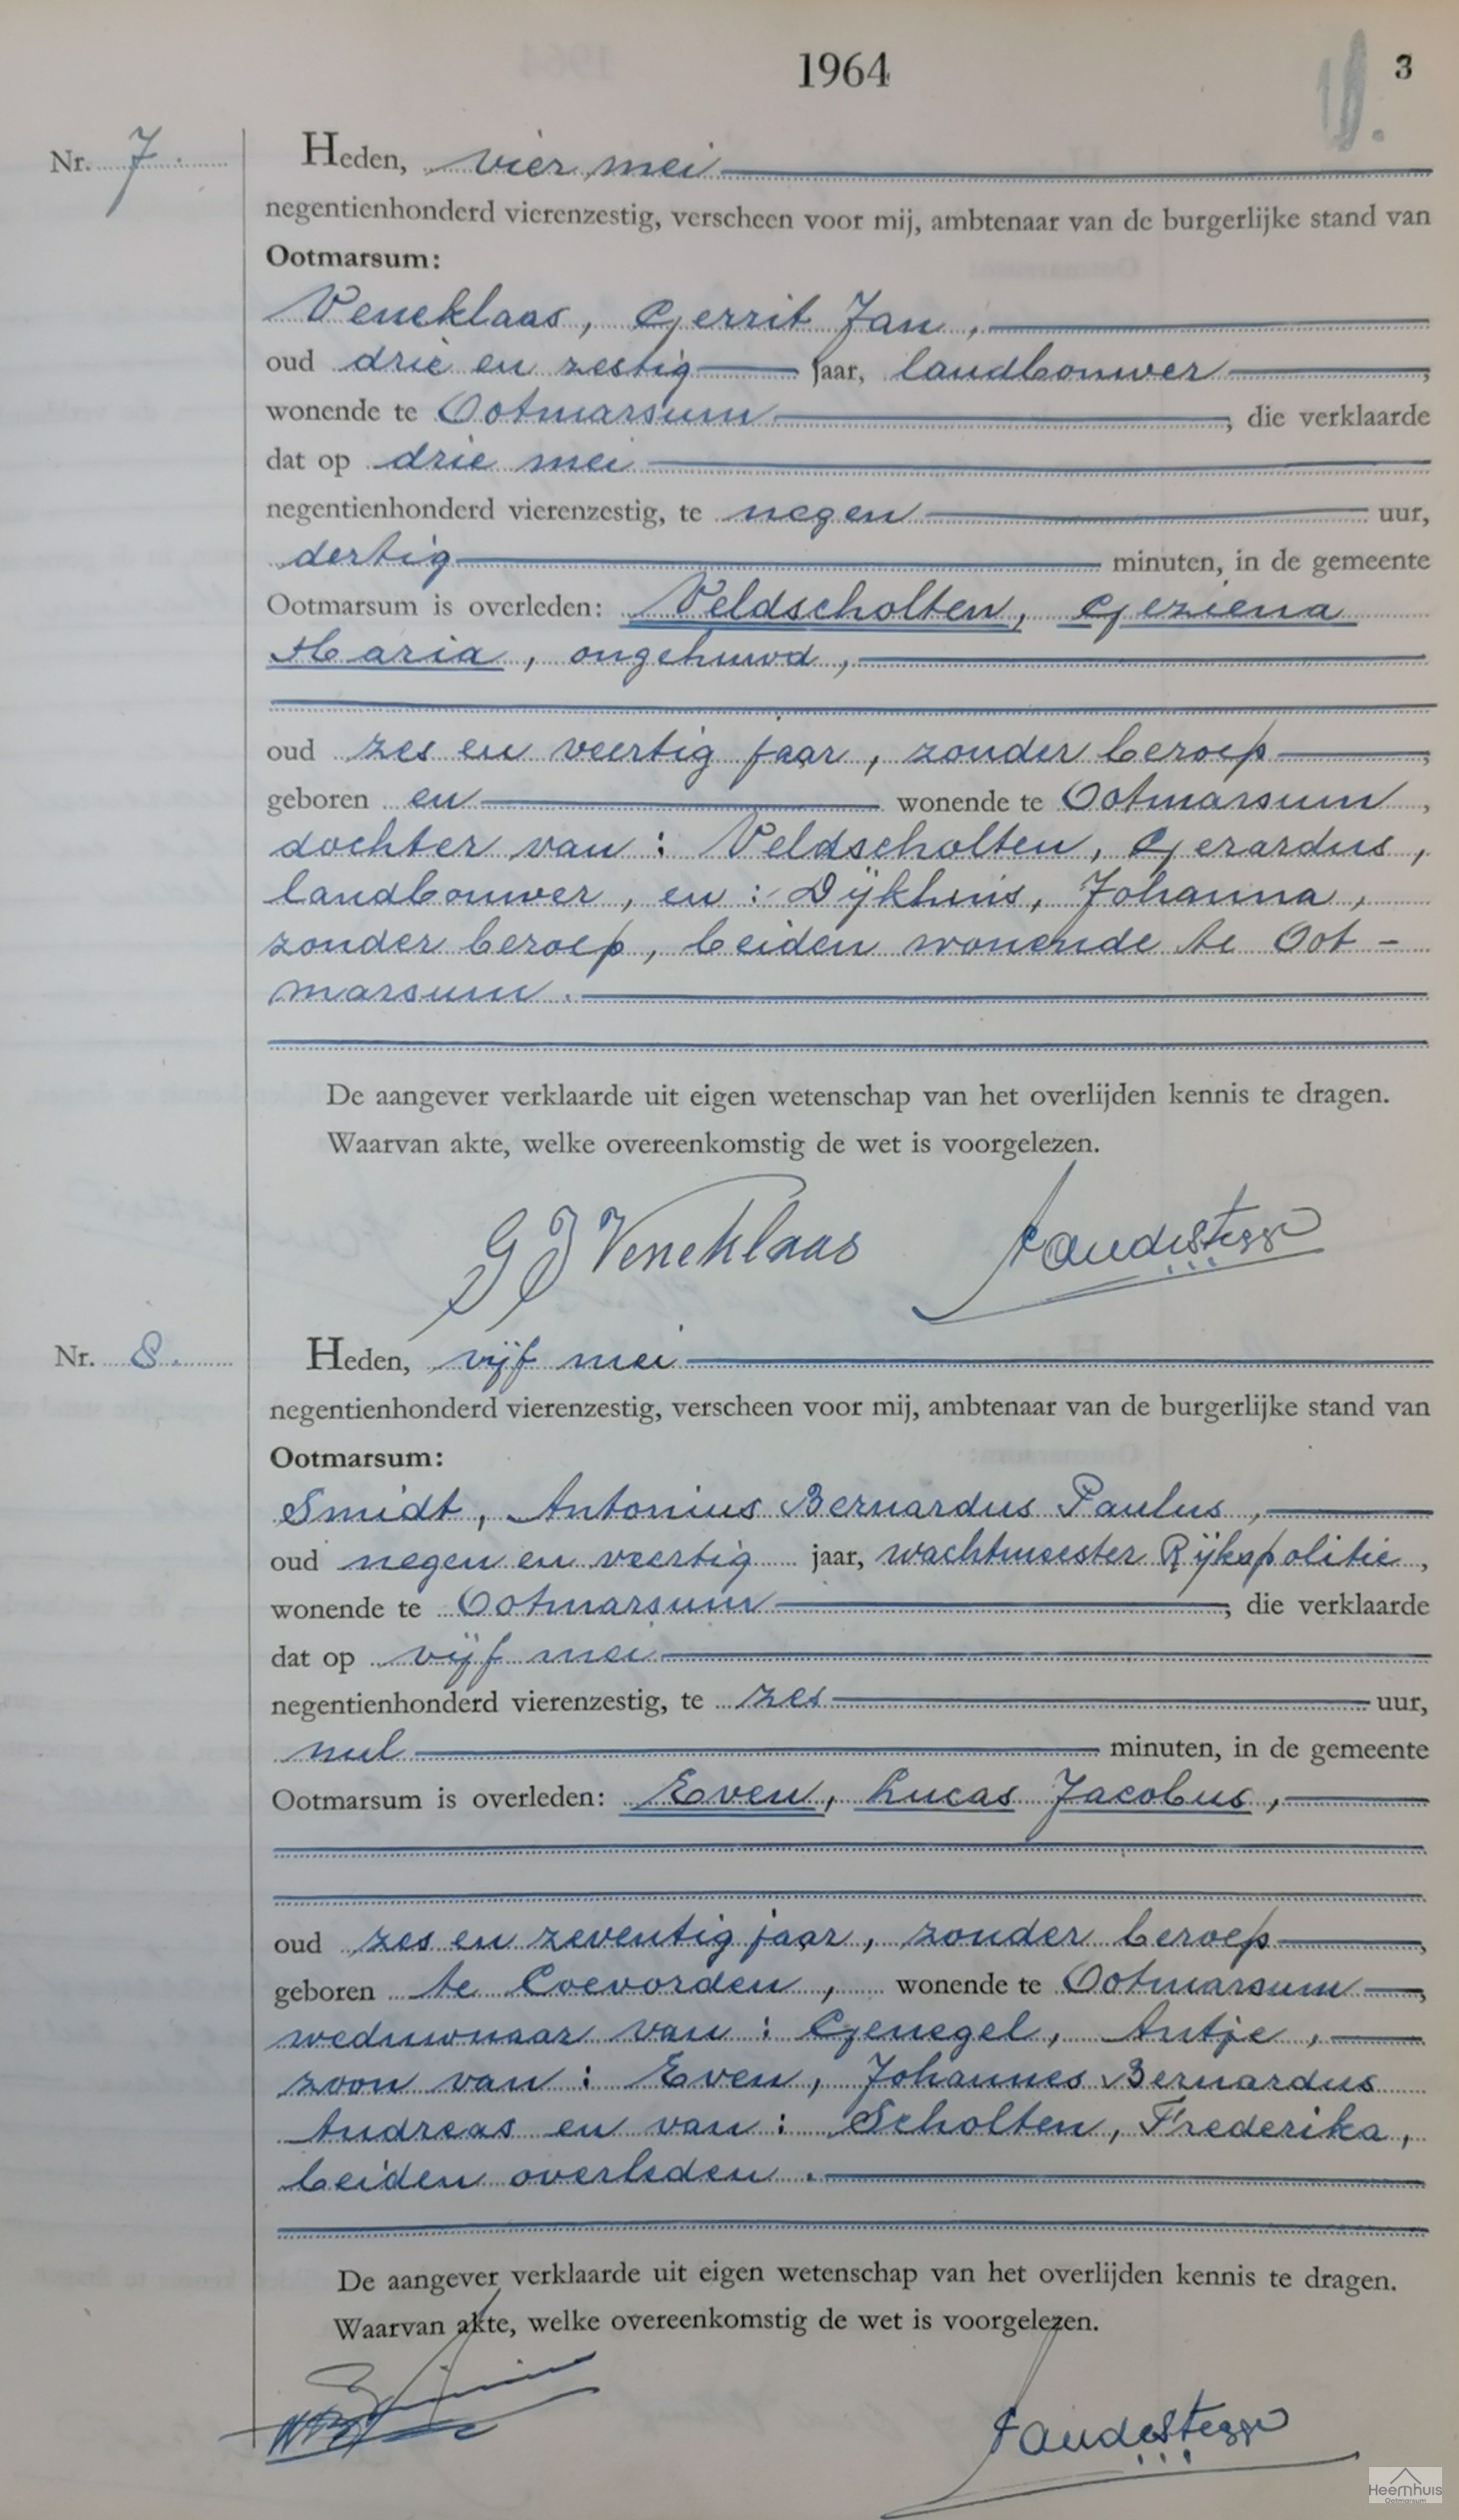 1964
3
Nr. 7.
Heden, vier mei
negentienhonderd vierenzestig, verscheen voor mij, ambtenaar van de burgerlijke stand van
Ootmarsum:
Veneklaas, Gerrit Jan,
oud drie en zestig jaar, landbouwer,
wonende te Ootmarsum, die verklaarde
dat op drie mei
negentienhonderd vierenzestig, te negen uur,
dertig minuten, in de gemeente
Ootmarsum is overleden: Veldscholten, Geziena
Maria, ongehuwd,
oud zes en veertig jaar, zonder beroep,
geboren en wonende te Ootmarsum,
dochter van: Veldscholten, Gerardus,
landbouwer, en: Dijkhuis, Johanna,
zonder beroep, beiden wonende te Oot-
marsum.
De aangever verklaarde uit eigen wetenschap van het overlijden kennis te dragen.
Waarvan akte, welke overeenkomstig de wet is voorgelezen.
G J Veneklaas
Nr. 8.
Heden, vijf mei
negentienhonderd vierenzestig, verscheen voor mij, ambtenaar van de burgerlijke stand van
Ootmarsum:
Smidt, Antonius Bernardus Paulus,
oud negen en veertig jaar, wachtmeester Rijkspolitie,
wonende te Ootmarsum, die verklaarde
dat op vijf mei
negentienhonderd vierenzestig, te zes uur,
nul minuten, in de gemeente
Ootmarsum is overleden: Even, Lucas Jacobus,
oud zes en zeventig jaar, zonder beroep,
geboren te Coevorden, wonende te Ootmarsum,
weduwnaar van: Genegel, Antje,
zoon van: Even, Johannes Bernardus
Andreas en van: Scholten, Frederika,
beiden overleden.
De aangever verklaarde uit eigen wetenschap van het overlijden kennis te dragen.
Waarvan akte, welke overeenkomstig de wet is voorgelezen.
Heemhuis
Ootmarsum